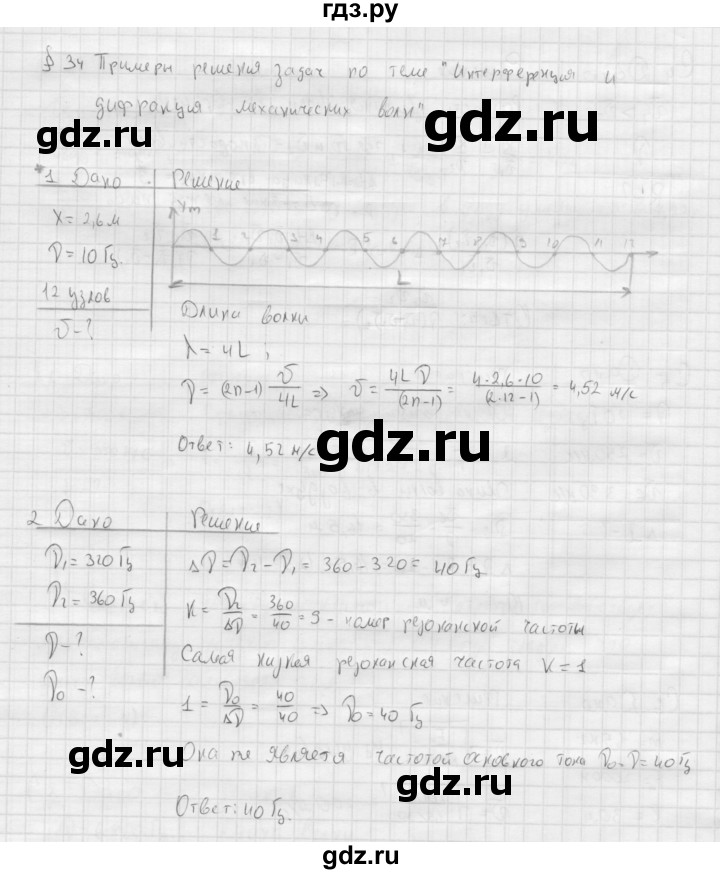 гдз.ру
§ 34 Примеры решения задач по теме "Интерференция и
дифракция механических волн"
gdz.ru gdz.ru
*1 Дано Решение
x = 2,6 м
ν = 10 Гц.
12 узлов
v - ?
Ym
1 2 3 4 5 6 7 8 9 10 11 12
L
Длина волны
λ = 4L ;
ν = (2n-1) v/4L => v = 4Lν/(2n-1) = 4·2,6·10/(2·12-1) = 4,52 м/с
Ответ: 4,52 м/с
gdz.ru gdz.ru
2 Дано Решение
ν₁ = 320 Гц
ν₂ = 360 Гц
ν - ?
ν₀ - ?
Δν = ν₂ - ν₁ = 360 - 320 = 40 Гц
K = ν₂/Δν = 360/40 = 9 - номер резонансной частоты
Самая низкая резонансная частота K = 1
1 = ν₀/Δν = 40/40 => ν₀ = 40 Гц
Она не является частотой основного тона ν₀ - ν = 40 Гц
Ответ: 40 Гц.
gdz.ru gdz.ru
gdz.ru